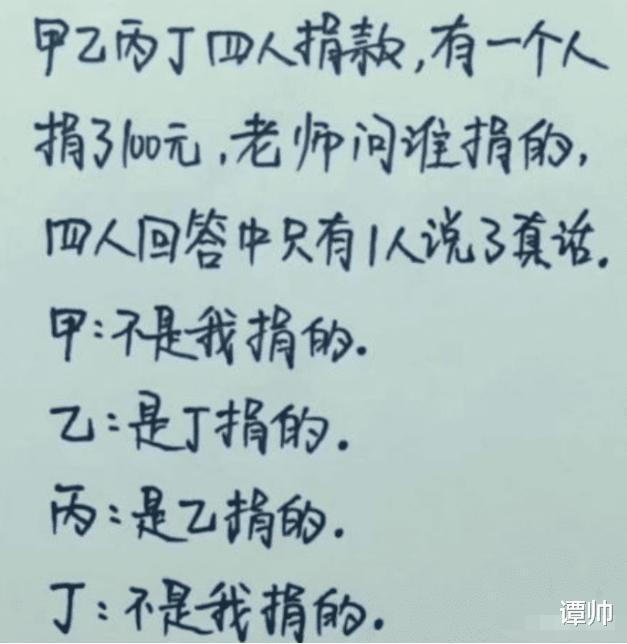 甲乙丙丁四人捐款,有一个人
捐了100元,老师问谁捐的,
四人回答中只有1人说了真话.
甲:不是我捐的.
乙:是丁捐的.
丙:是乙捐的.
丁:不是我捐的.
谭帅